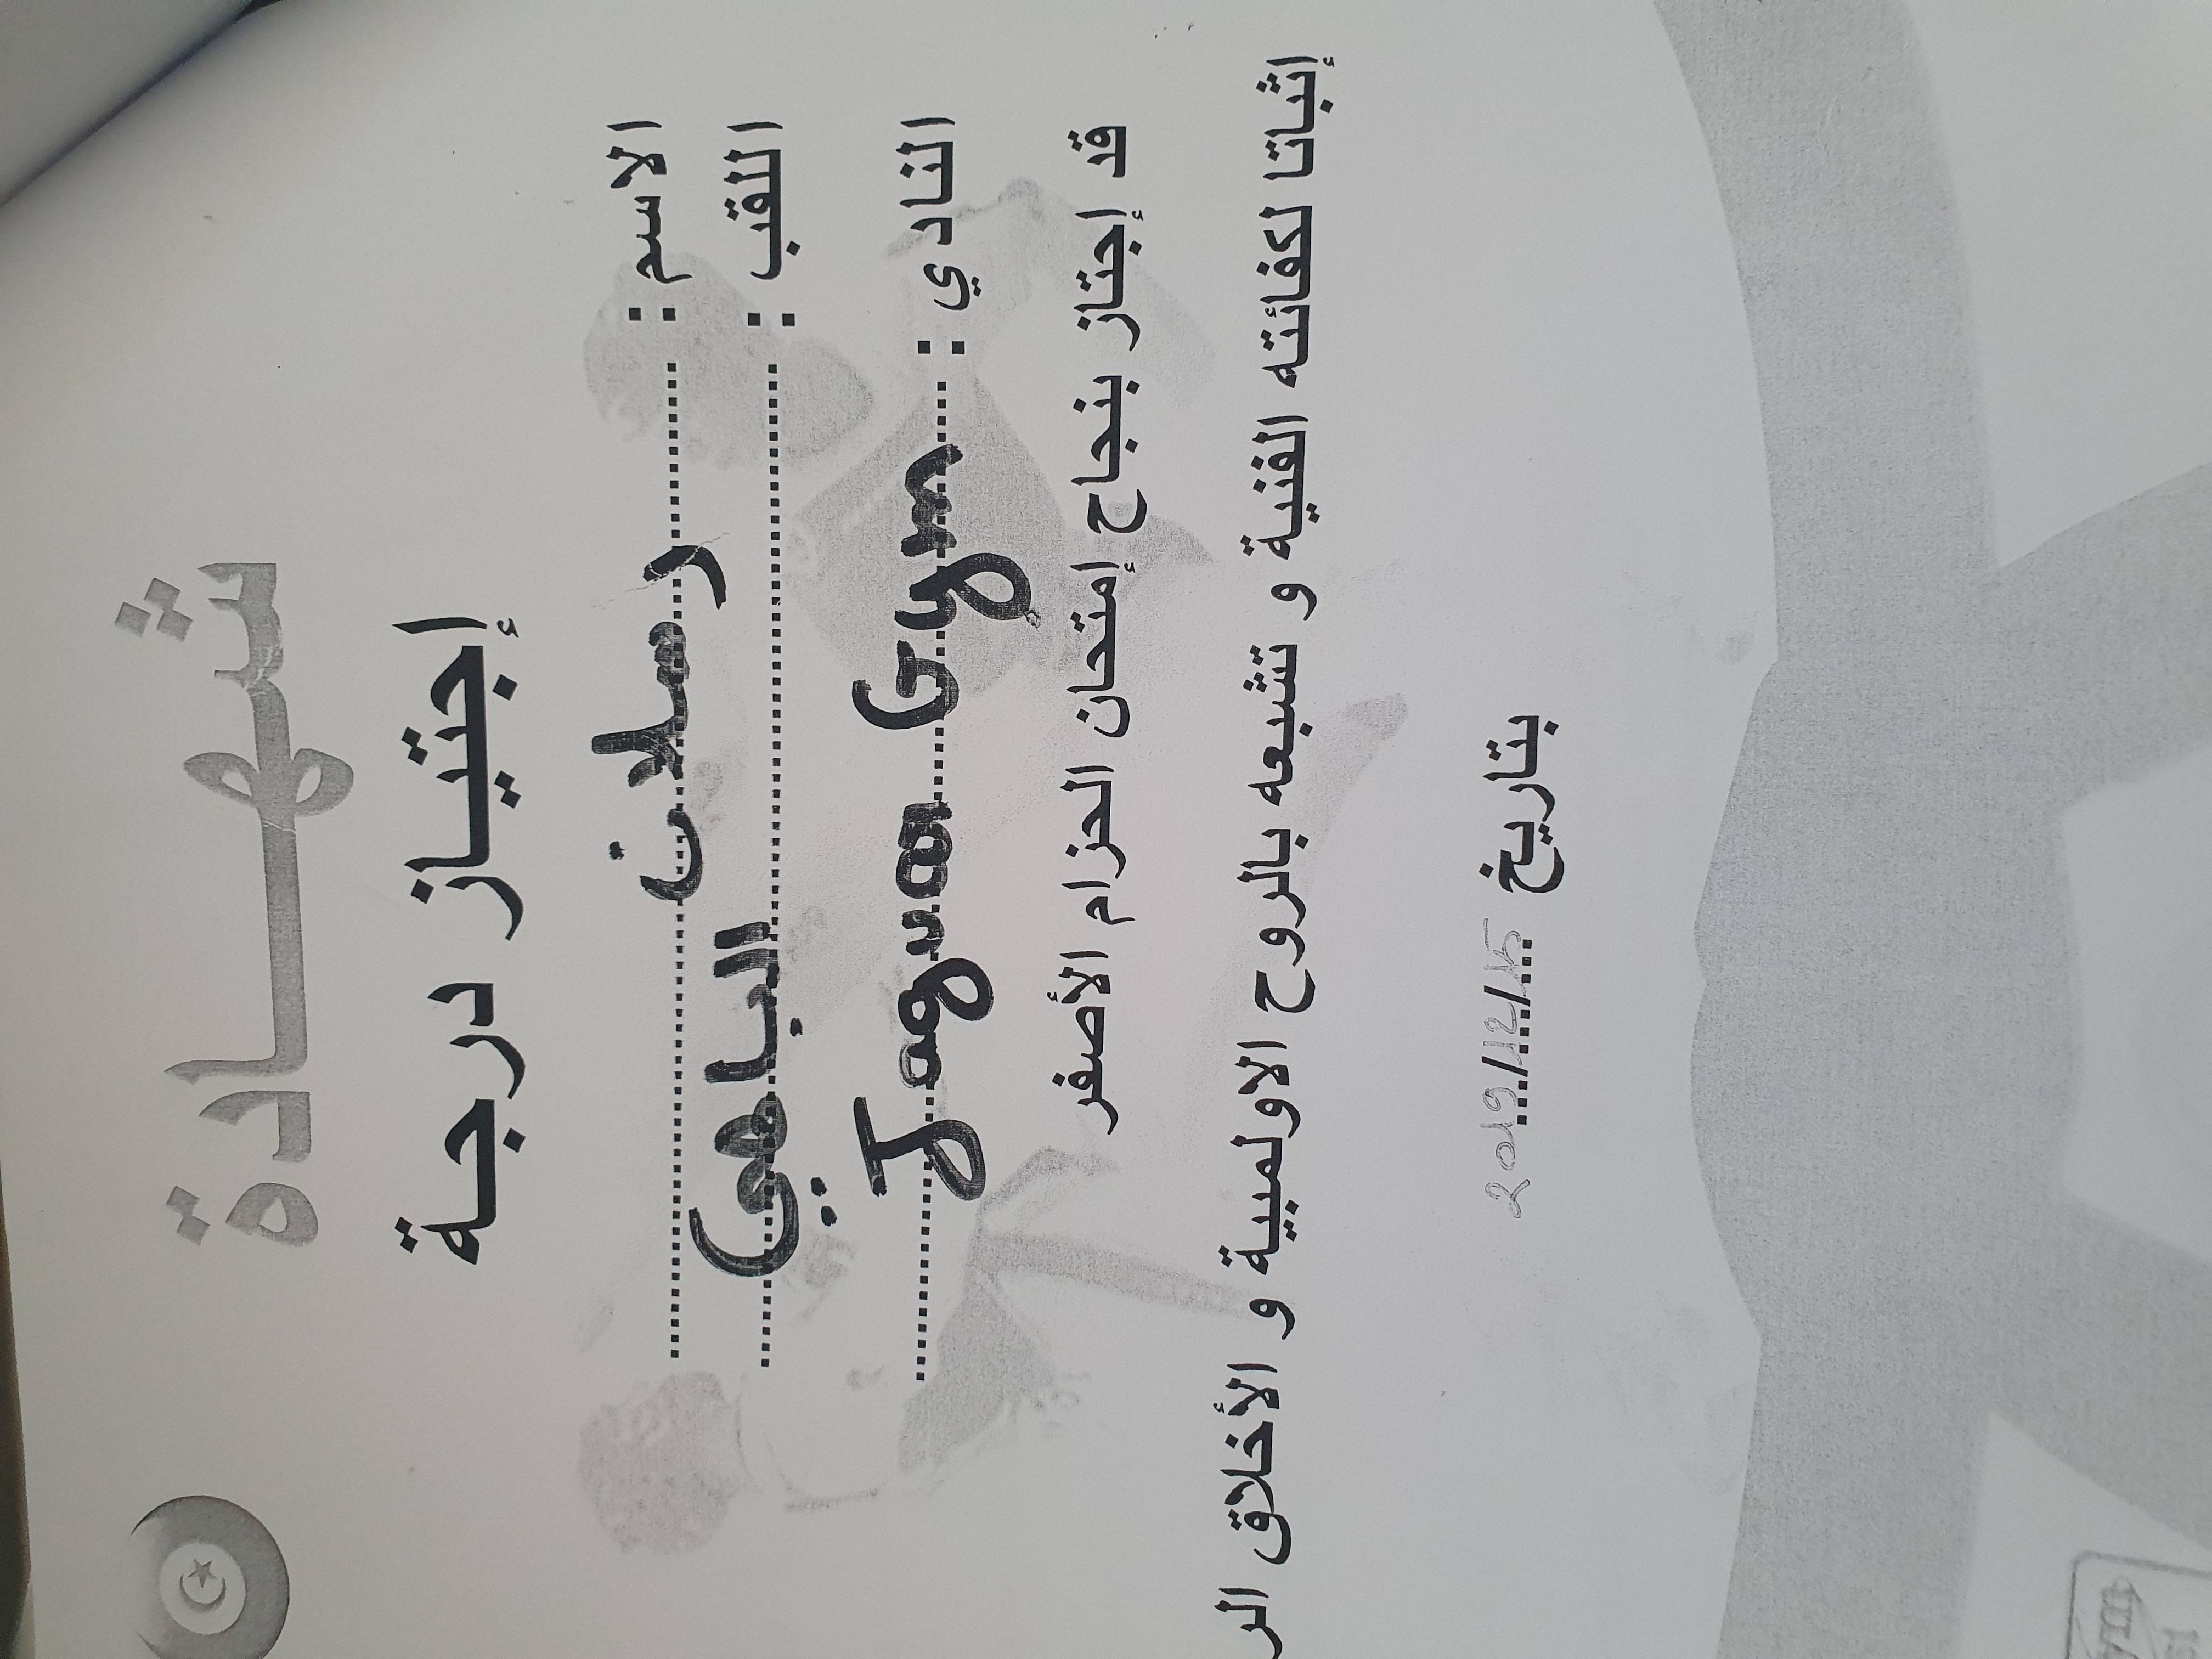 شهادة
إجتياز درجة
الاسم : رسلان
اللقب : الباهي
النادي : Jaguar Gym
قد إجتاز بنجاح إمتحان الحزام الأصفر
إثباتا لكفائته الفنية و تشبعه بالروح الاولمبية و الأخلاق الر
بتاريخ 2019/12/15